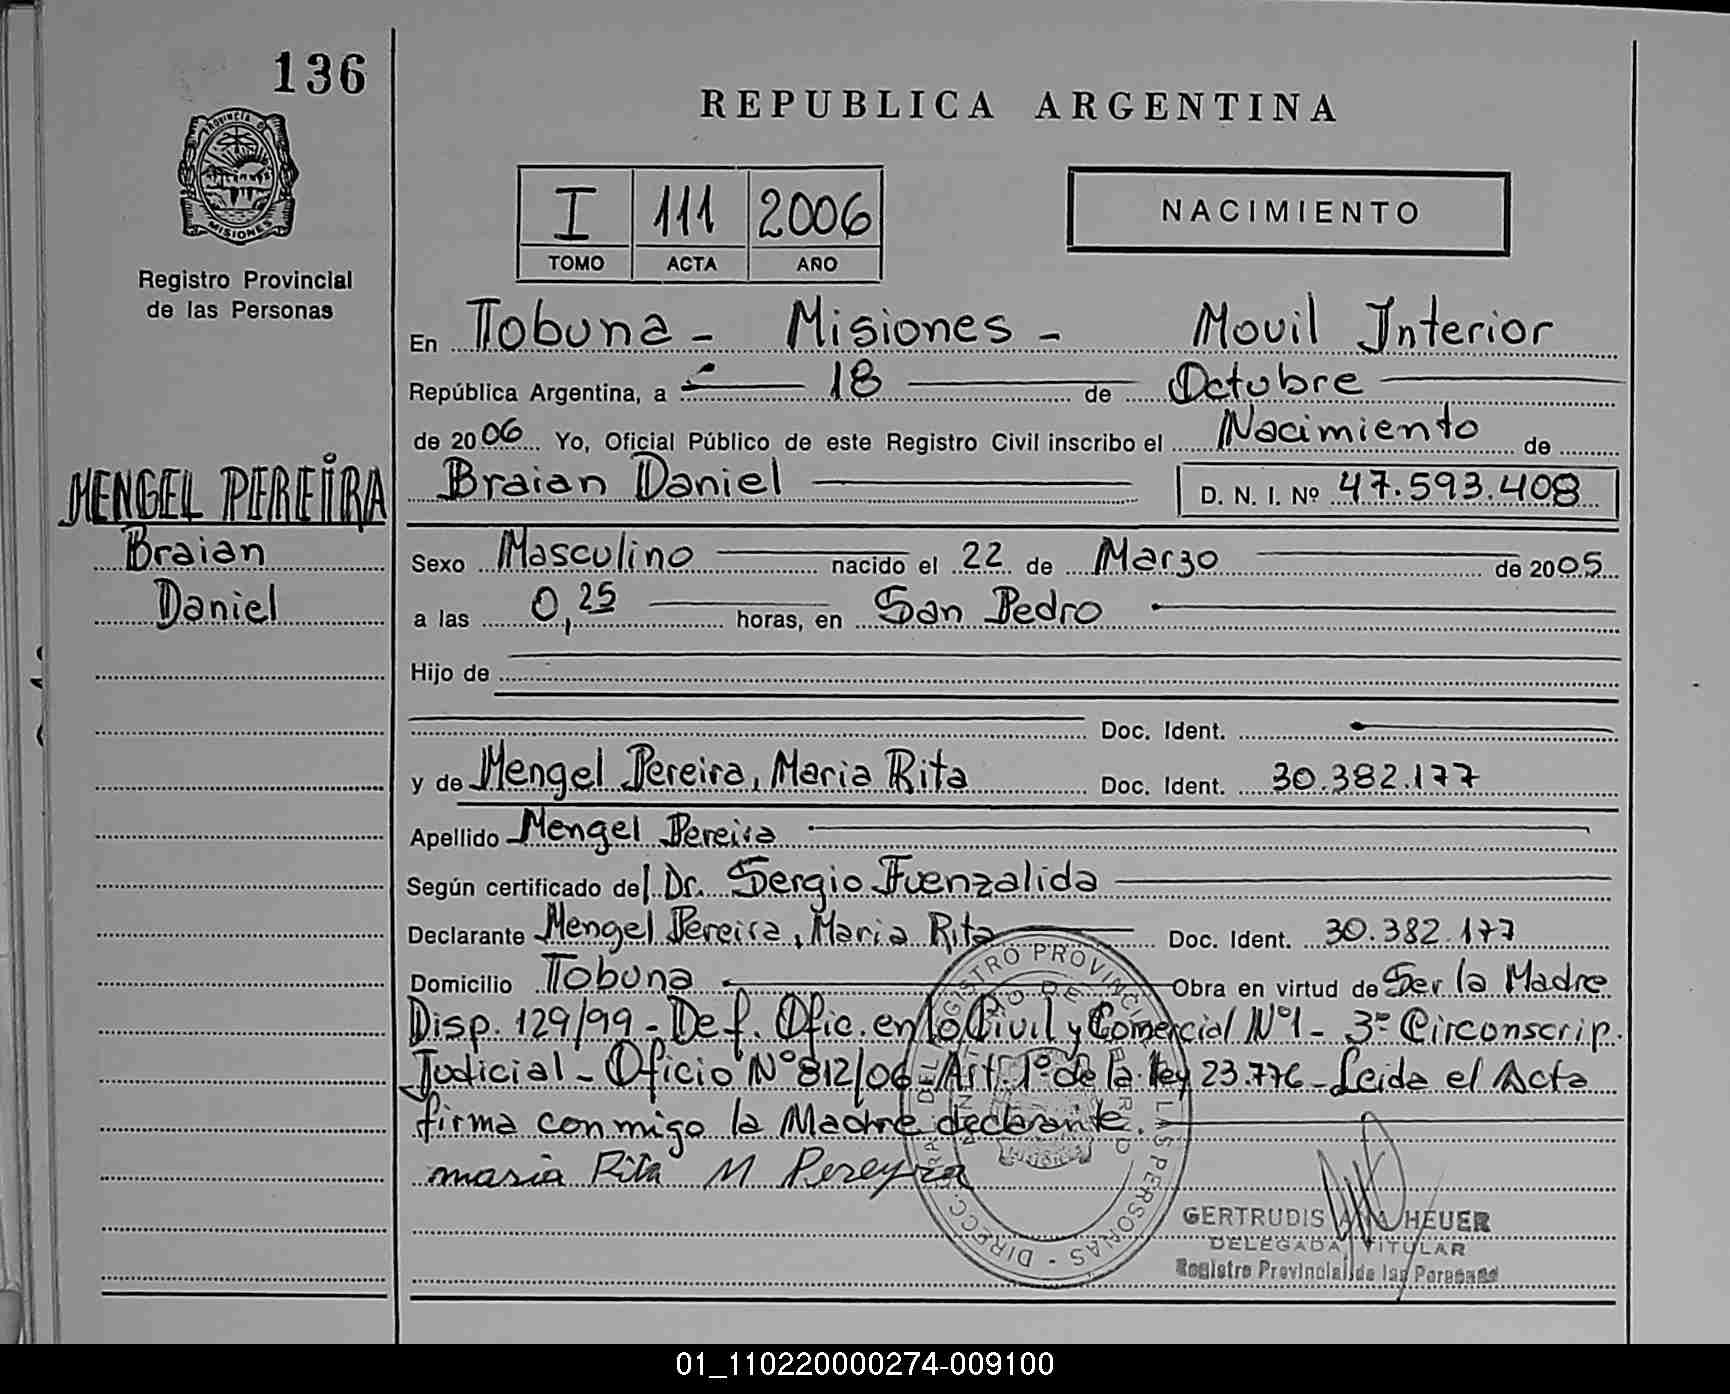 136
PROVINCIA DE
MISIONES
Registro Provincial
de las Personas
MENGEL PEREIRA
Braian
Daniel
REPUBLICA ARGENTINA
I 111 2006
TOMO ACTA AÑO
NACIMIENTO
En Tobuna - Misiones - Movil Interior
República Argentina, a 18 de Octubre
de 2006 Yo, Oficial Público de este Registro Civil inscribo el Nacimiento de
Braian Daniel D. N. I. Nº 47.593.408
Sexo Masculino nacido el 22 de Marzo de 2005
a las 0,25 horas, en San Pedro
Hijo de
Doc. Ident.
y de Mengel Pereira, Maria Rita Doc. Ident. 30.382.177
Apellido Mengel Pereira
Según certificado del Dr. Sergio Fuenzalida
Declarante Mengel Pereira, Maria Rita Doc. Ident. 30.382.177
Domicilio Tobuna Obra en virtud de Ser la Madre
Disp. 129/99 - Def. Ofic. en lo Civil y Comercial Nº1 - 3º Circonscrip.
Judicial - Oficio Nº 812/06 - Art. 1º de la ley 23.776 - Leida el Acta
firma conmigo la Madre declarante.
maria Rita M Pereyra
DIRECC. GRAL. DEL REGISTRO PROVINCIAL DE LAS PERSONAS
GERTRUDIS ANA HEUER
DELEGADA TITULAR
Registro Provincial de las Personas
01_110220000274-009100